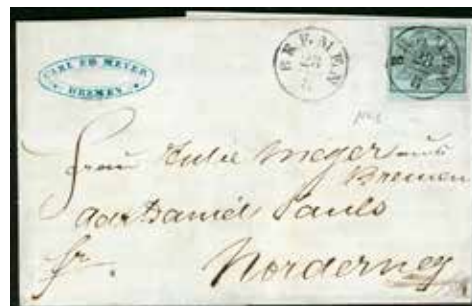 CARL ED MEYER
BREMEN
BREMEN
23
8
BREMEN
23
8
Frau Julie Meyer aus
Bremen
Daniel Pauls
fr. Norderney